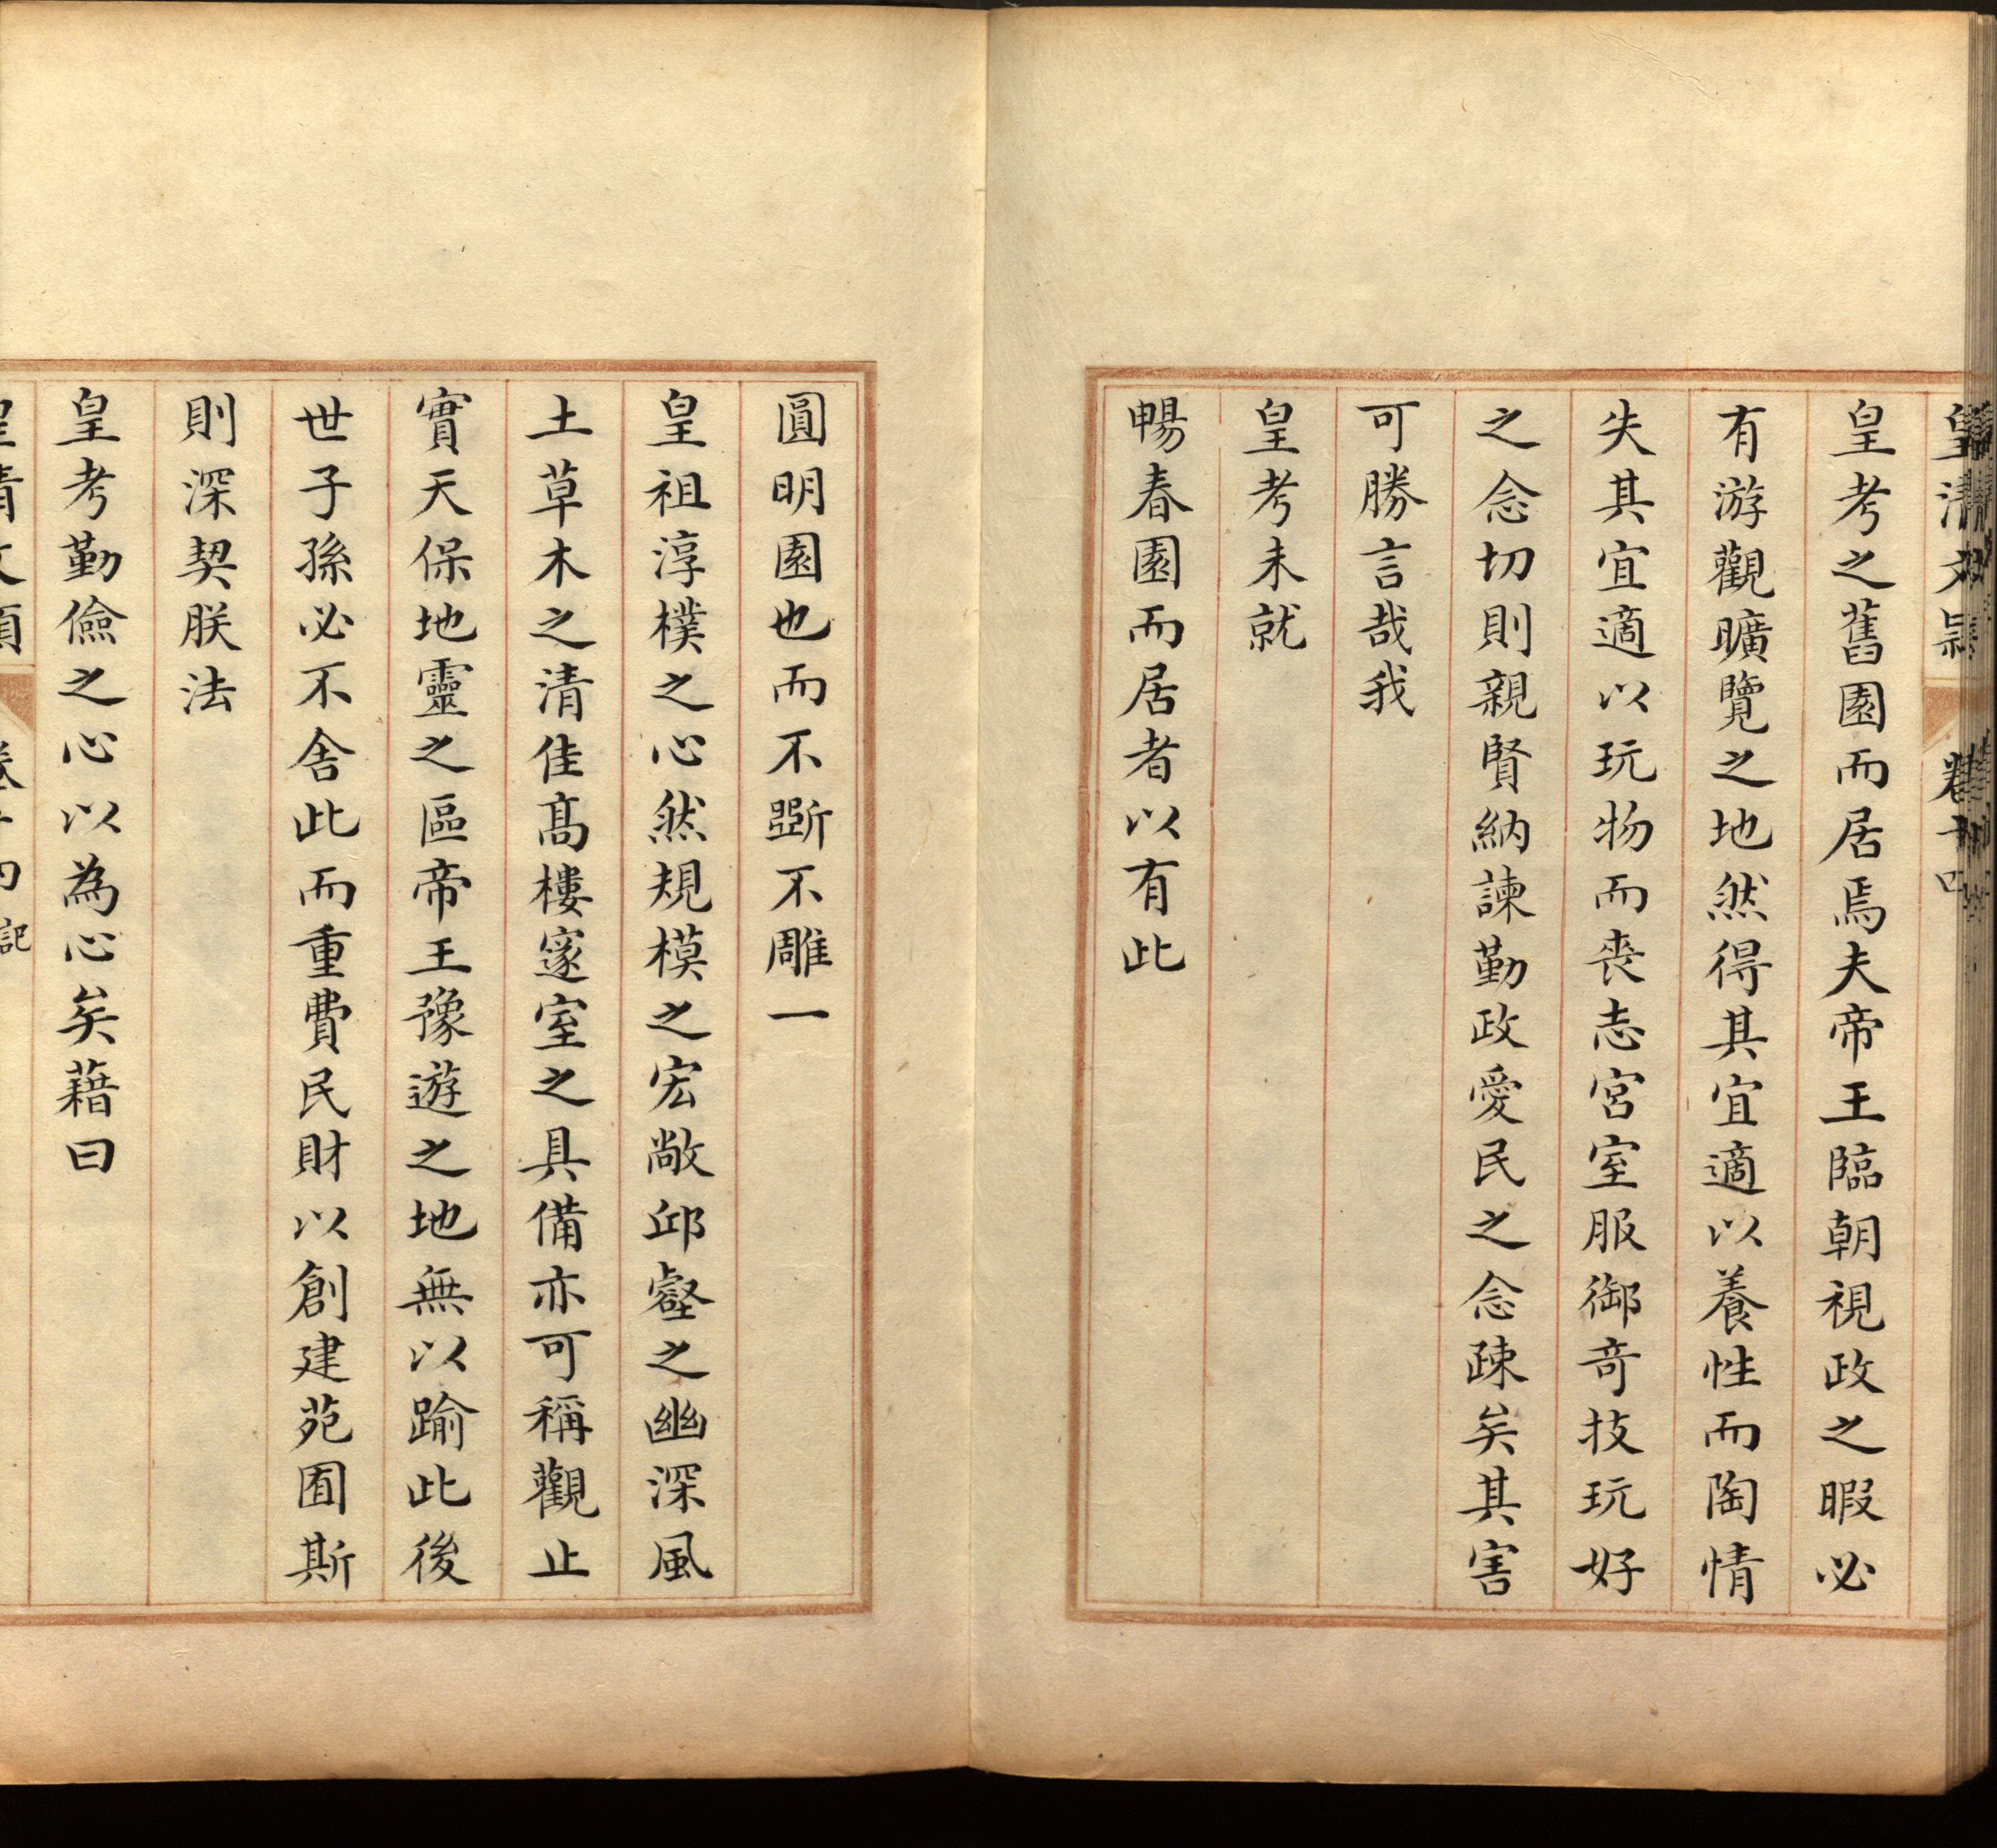 皇清文穎 卷十四
皇考之舊園而居焉夫帝王臨朝視政之暇必
有游觀曠覽之地然得其宜適以養性而陶情
失其宜適以玩物而喪志宮室服御奇技玩好
之念切則親賢納諫勤政愛民之念疎矣其害
可勝言哉我
皇考未就
暢春園而居者以有此
圓明園也而不斲不雕一
皇祖淳樸之心然規模之宏敞邱壑之幽深風
土草木之清佳高樓邃室之具備亦可稱觀止
實天保地靈之區帝王豫遊之地無以踰此後
世子孫必不舍此而重費民財以創建苑囿斯
則深契朕法
皇考勤儉之心以為心矣藉曰